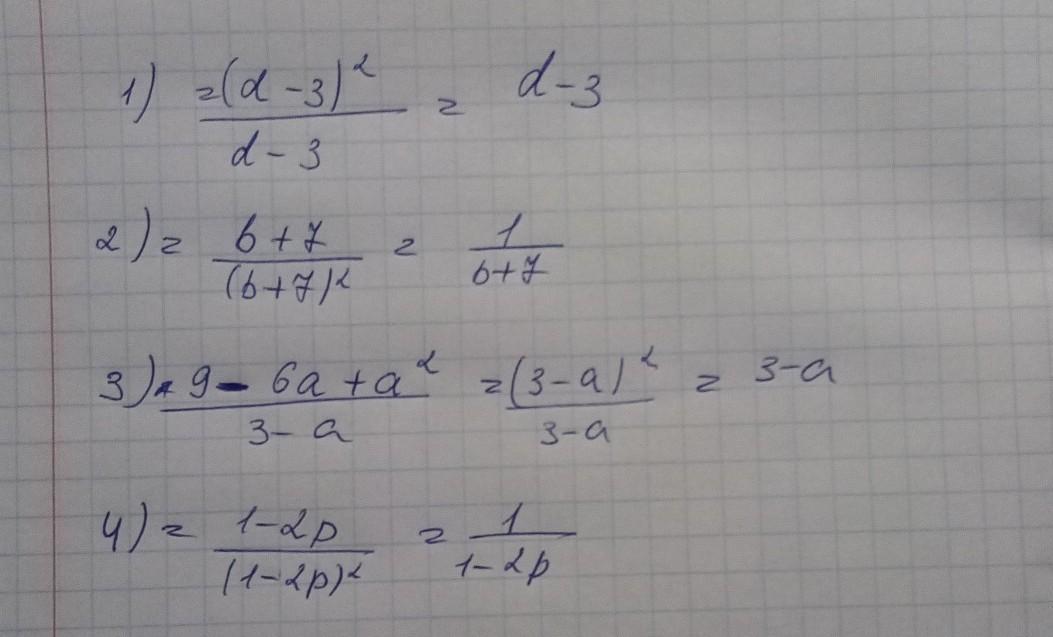 1) = (d - 3)² / d - 3 = d - 3
2) = b + 7 / (b + 7)² = 1 / b + 7
3) 9 - 6a + a² / 3 - a = (3 - a)² / 3 - a = 3 - a
4) = 1 - 2p / (1 - 2p)² = 1 / 1 - 2p